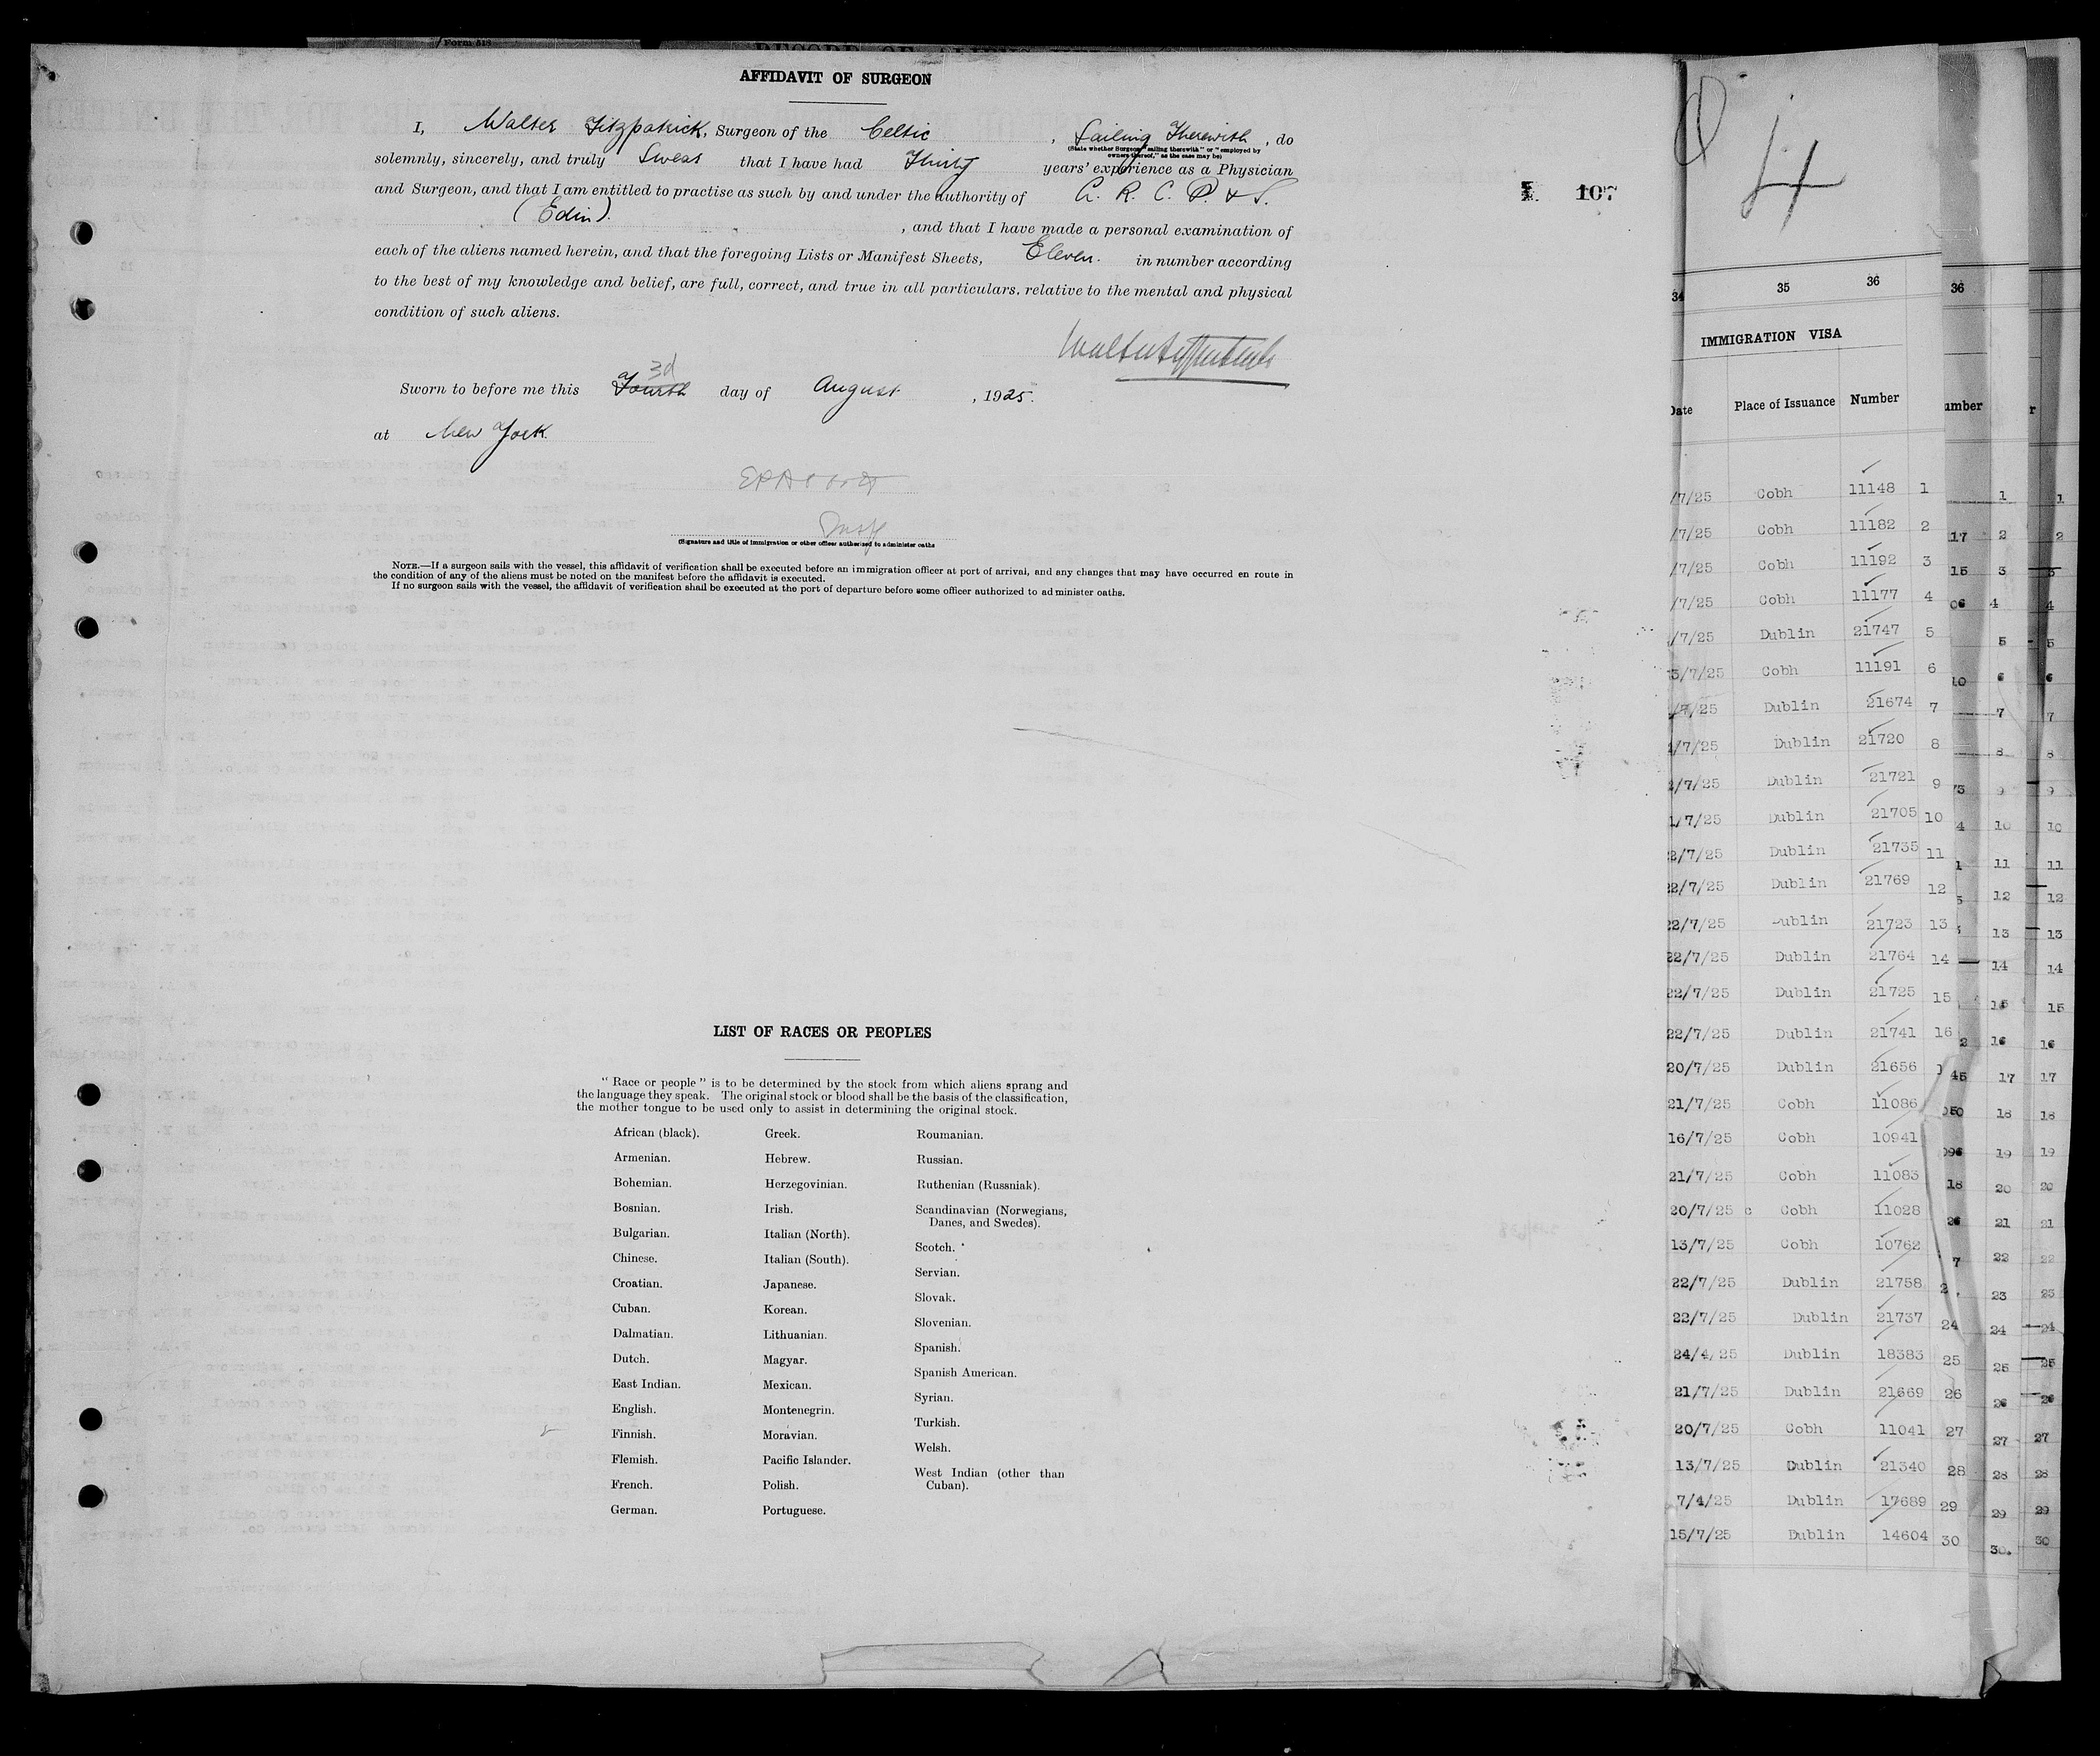 Form 518
AFFIDAVIT OF SURGEON
I, Walter Fitzpatrick, Surgeon of the Celtic, Sailing Therewith, do
(State whether Surgeon "sailing therewith" or "employed by
owners thereof," as the case may be)
solemnly, sincerely, and truly Swear that I have had Thirty years' experience as a Physician
and Surgeon, and that I am entitled to practise as such by and under the authority of C. R. C. P. & S.
(Edin).
, and that I have made a personal examination of
each of the aliens named herein, and that the foregoing Lists or Manifest Sheets, Eleven. in number according
to the best of my knowledge and belief, are full, correct, and true in all particulars, relative to the mental and physical
condition of such aliens.
Walter Fitzpatrick
Sworn to before me this Fourth 3d day of August, 1925.
at New York.
(Signature and title of immigration or other officer authorized to administer oaths
NOTE.—If a surgeon sails with the vessel, this affidavit of verification shall be executed before an immigration officer at port of arrival, and any changes that may have occurred en route in
the condition of any of the aliens must be noted on the manifest before the affidavit is executed.
If no surgeon sails with the vessel, the affidavit of verification shall be executed at the port of departure before some officer authorized to administer oaths.
107
LIST OF RACES OR PEOPLES
"Race or people" is to be determined by the stock from which aliens sprang and
the language they speak. The original stock or blood shall be the basis of the classification,
the mother tongue to be used only to assist in determining the original stock.
African (black).
Armenian.
Bohemian.
Bosnian.
Bulgarian.
Chinese.
Croatian.
Cuban.
Dalmatian.
Dutch.
East Indian.
English.
Finnish.
Flemish.
French.
German.
Greek.
Hebrew.
Herzegovinian.
Irish.
Italian (North).
Italian (South).
Japanese.
Korean.
Lithuanian.
Magyar.
Mexican.
Montenegrin.
Moravian.
Pacific Islander.
Polish.
Portuguese.
Roumanian.
Russian.
Ruthenian (Russniak).
Scandinavian (Norwegians,
Danes, and Swedes).
Scotch.
Servian.
Slovak.
Slovenian.
Spanish.
Spanish American.
Syrian.
Turkish.
Welsh.
West Indian (other than
Cuban).
4
34 35 36
IMMIGRATION VISA
Date Place of Issuance Number
/7/25 Cobh 11148 1
/7/25 Cobh 11182 2
/7/25 Cobh 11192 3
/7/25 Cobh 11177 4
/7/25 Dublin 21747 5
/7/25 Cobh 11191 6
/7/25 Dublin 21674 7
/7/25 Dublin 21720 8
2/7/25 Dublin 21721 9
1/7/25 Dublin 21705 10
22/7/25 Dublin 21735 11
22/7/25 Dublin 21769 12
22/7/25 Dublin 21723 13
22/7/25 Dublin 21764 14
22/7/25 Dublin 21725 15
22/7/25 Dublin 21741 16
20/7/25 Dublin 21656
21/7/25 Cobh 11086
16/7/25 Cobh 10941
21/7/25 Cobh 11083
20/7/25 c Cobh 11028
13/7/25 Cobh 10762
22/7/25 Dublin 21758
22/7/25 Dublin 21737 24
24/4/25 Dublin 18383 25
21/7/25 Dublin 21669 26
20/7/25 Cobh 11041 27
13/7/25 Dublin 21340 28
7/4/25 Dublin 17689 29
15/7/25 Dublin 14604 30